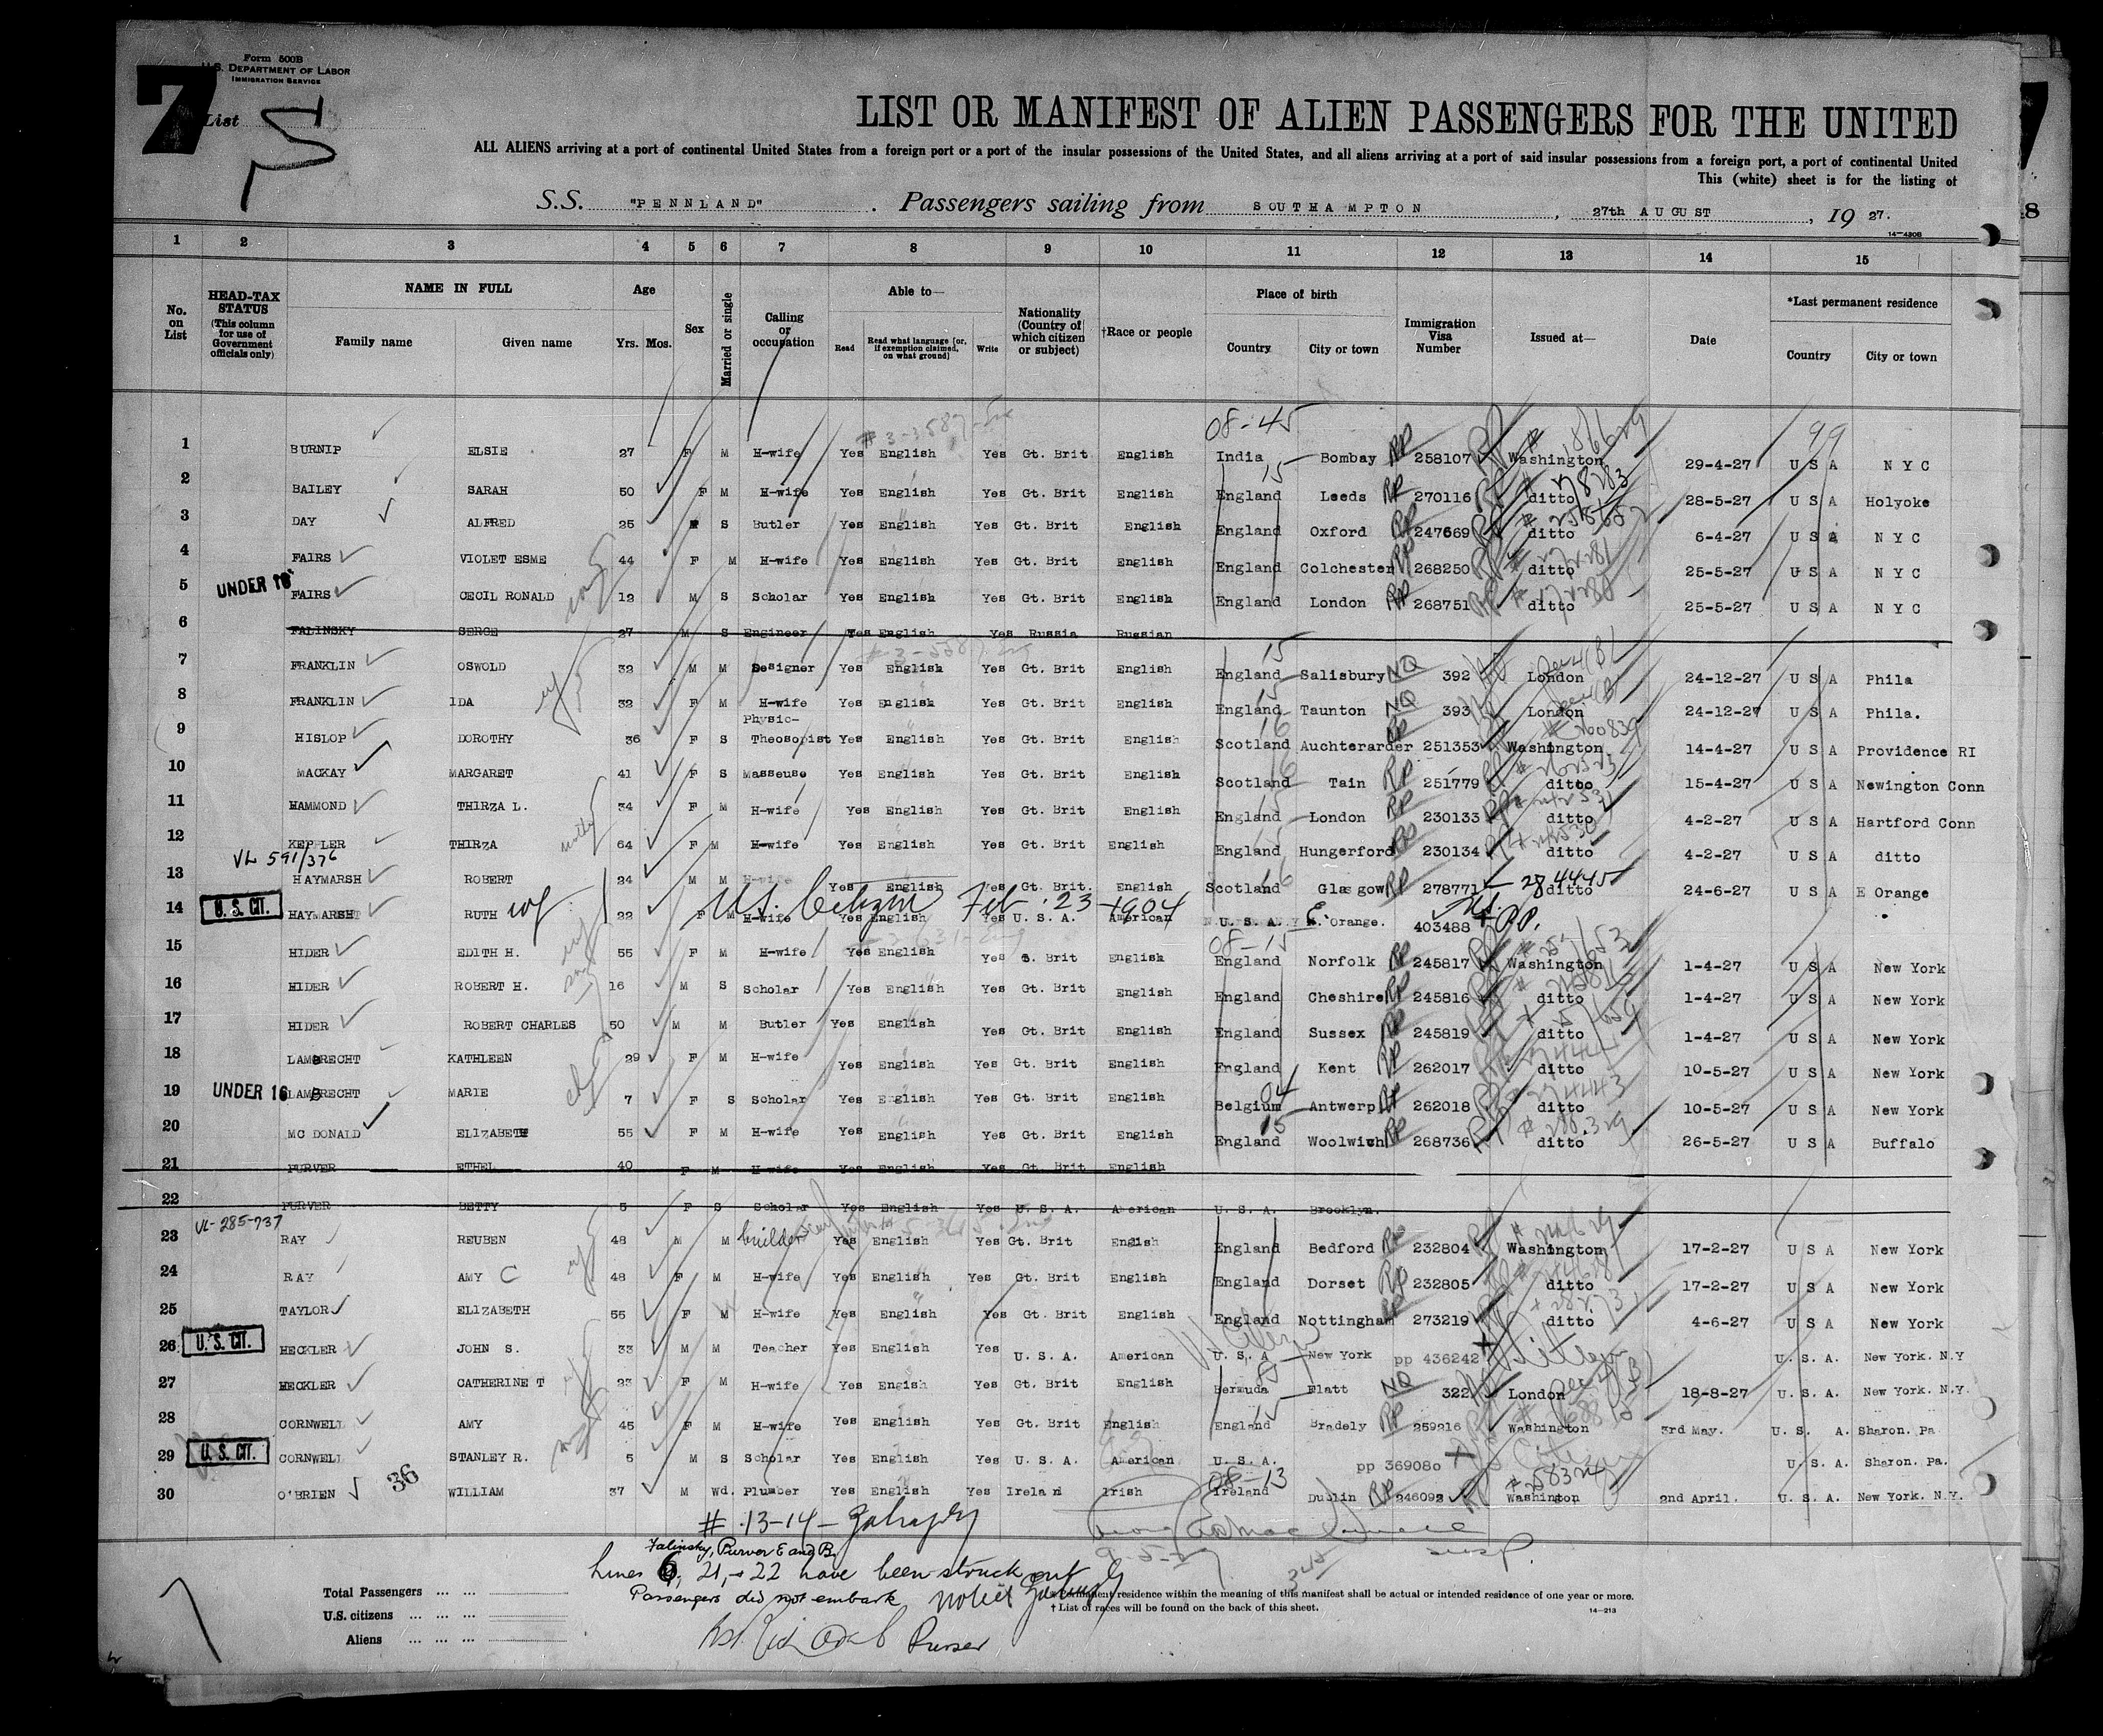 Form 500B
U.S. DEPARTMENT OF LABOR
IMMIGRATION SERVICE
7
List
LIST OR MANIFEST OF ALIEN PASSENGERS FOR THE UNITED
ALL ALIENS arriving at a port of continental United States from a foreign port or a port of the insular possessions of the United States, and all aliens arriving at a port of said insular possessions from a foreign port, a port of continental United
This (white) sheet is for the listing of
S.S. "PENNLAND" . Passengers sailing from SOUTHAMPTON , 27th AUGUST , 19 27.
14-430B
8
1 2 3 4 5 6 7 8 9 10 11 12 13 14 15
No. on List
HEAD-TAX STATUS (This column for use of Government officials only)
NAME IN FULL
Family name Given name
Age
Yrs. Mos.
Sex
Married or single
Calling or occupation
Able to—
Read Read what language [or, if exemption claimed, on what ground] Write
Nationality (Country of which citizen or subject)
†Race or people
Place of birth
Country City or town
Immigration Visa Number
Issued at—
Date
*Last permanent residence
Country City or town
08-45 99
1 BURNIP ELSIE 27 F M H-wife Yes English Yes Gt. Brit English India Bombay RP 258107 Washington 29-4-27 U S A N Y C
2 BAILEY SARAH 50 F M H-wife Yes English Yes Gt. Brit English England Leeds RP 270116 ditto 28-5-27 U S A Holyoke
3 DAY ALFRED 25 S Butler Yes English Yes Gt. Brit English England Oxford RP 247669 ditto 6-4-27 U S A N Y C
4 FAIRS VIOLET ESME 44 F M H-wife Yes English Yes Gt. Brit English England Colchester RP 268250 ditto 25-5-27 U S A N Y C
UNDER 16
5 FAIRS CECIL RONALD 12 M S Scholar Yes English Yes Gt. Brit English England London RP 268751 ditto 25-5-27 U S A N Y C
6 FALINSKY SERGE 27 M S Engineer Yes English Yes Russia Russian
7 FRANKLIN OSWOLD 32 M M Designer Yes English Yes Gt. Brit English England Salisbury NQ 392 London 24-12-27 U S A Phila
8 FRANKLIN IDA 32 F M H-wife Yes English Yes Gt. Brit English England Taunton NQ 393 London 24-12-27 U S A Phila.
9 HISLOP DOROTHY 36 F S Physic-Theosopist Yes English Yes Gt. Brit English Scotland Auchterarder RP 251353 Washington 14-4-27 U S A Providence RI
10 MACKAY MARGARET 41 F S Masseuse Yes English Yes Gt. Brit English Scotland Tain RP 251779 ditto 15-4-27 U S A Newington Conn
11 HAMMOND THIRZA L. 34 F M H-wife Yes English Yes Gt. Brit English England London RP 230133 ditto 4-2-27 U S A Hartford Conn
12 KEPPLER THIRZA 64 F M H-wife Yes English Yes Gt. Brit English England Hungerford RP 230134 ditto 4-2-27 U S A ditto
VL 591/376
13 HAYMARSH ROBERT 24 M M H-wife Yes English Yes Gt. Brit. English Scotland Glasgow RP 278771 284445 ditto 24-6-27 U S A E Orange
U. S. CIT.
14 HAYMARSH RUTH wf 22 F M H-wife Yes English Yes U. S. A. American U. S. A. E. Orange. 403488 PP.
U.S. Citizen Feb. 23-1904
08-15
15 HIDER EDITH H. 55 F M H-wife Yes English Yes G. Brit English England Norfolk RP 245817 Washington 1-4-27 U S A New York
16 HIDER ROBERT H. 16 M S Scholar Yes English Yes Gt. Brit English England Cheshire RP 245816 ditto 1-4-27 U S A New York
17 HIDER ROBERT CHARLES 50 M M Butler Yes English Yes Gt. Brit English England Sussex RP 245819 ditto 1-4-27 U S A New York
18 LAMBRECHT KATHLEEN 29 F M H-wife Yes English Yes Gt. Brit English England Kent RP 262017 ditto 10-5-27 U S A New York
UNDER 16
19 LAMBRECHT MARIE 7 F S Scholar Yes English Yes Gt. Brit English Belgium 04 Antwerp RP 262018 ditto 10-5-27 U S A New York
20 MC DONALD ELIZABETH 55 F M H-wife Yes English Yes Gt. Brit English England Woolwich RP 268736 ditto 26-5-27 U S A Buffalo
21 PURVER ETHEL 40 F M H-wife Yes English Yes Gt. Brit English
22 PURVER BETTY 5 F S Scholar Yes English Yes U. S. A. American U. S. A. Brooklyn.
VL-285-737
23 RAY REUBEN 48 M M builder Yes English Yes Gt. Brit English England Bedford RP 232804 Washington 17-2-27 U S A New York
24 RAY AMY C 48 F M H-wife Yes English Yes Gt. Brit English England Dorset RP 232805 ditto 17-2-27 U S A New York
25 TAYLOR ELIZABETH 55 F M H-wife Yes English Yes Gt. Brit English England Nottingham RP 273219 ditto 4-6-27 U S A New York
U. S. CIT.
26 HECKLER JOHN S. 33 M M Teacher Yes English Yes U. S. A. American U. S. A New York pp 436242 U. S. A. New York. N.Y
27 HECKLER CATHERINE T 23 F M H-wife Yes Engish Yes Gt. Brit English Bermuda Flatt NQ 322 London 18-8-27 U. S. A. New York. N.Y.
28 CORNWELL AMY 45 F M H-wife Yes English Yes Gt. Brit English England Bradely RP 259216 Washington 3rd May. U. S. A. Sharon. Pa
U. S. CIT.
29 CORNWELL STANLEY R. 5 M S Scholar Yes English Yes U. S. A. American U. S. A. pp 369080 U. S. A. Sharon. Pa.
08-13
30 O'BRIEN 36 WILLIAM 37 M Wd. Plumber Yes English Yes Ireland Irish Ireland Dublin RP 246092 Washington 2nd April. U. S. A. New York. N.Y.
# 13-14 -
Falinsky, Purver E and B.
Lines 6, 21, + 22 have been struck out
Passengers did not embark
Purser
9-5-27
Total Passengers ... ... ...
U.S. citizens ... ... ...
Aliens ... ... ...
* Permanent residence within the meaning of this manifest shall be actual or intended residence of one year or more.
† List of races will be found on the back of this sheet.
14-213